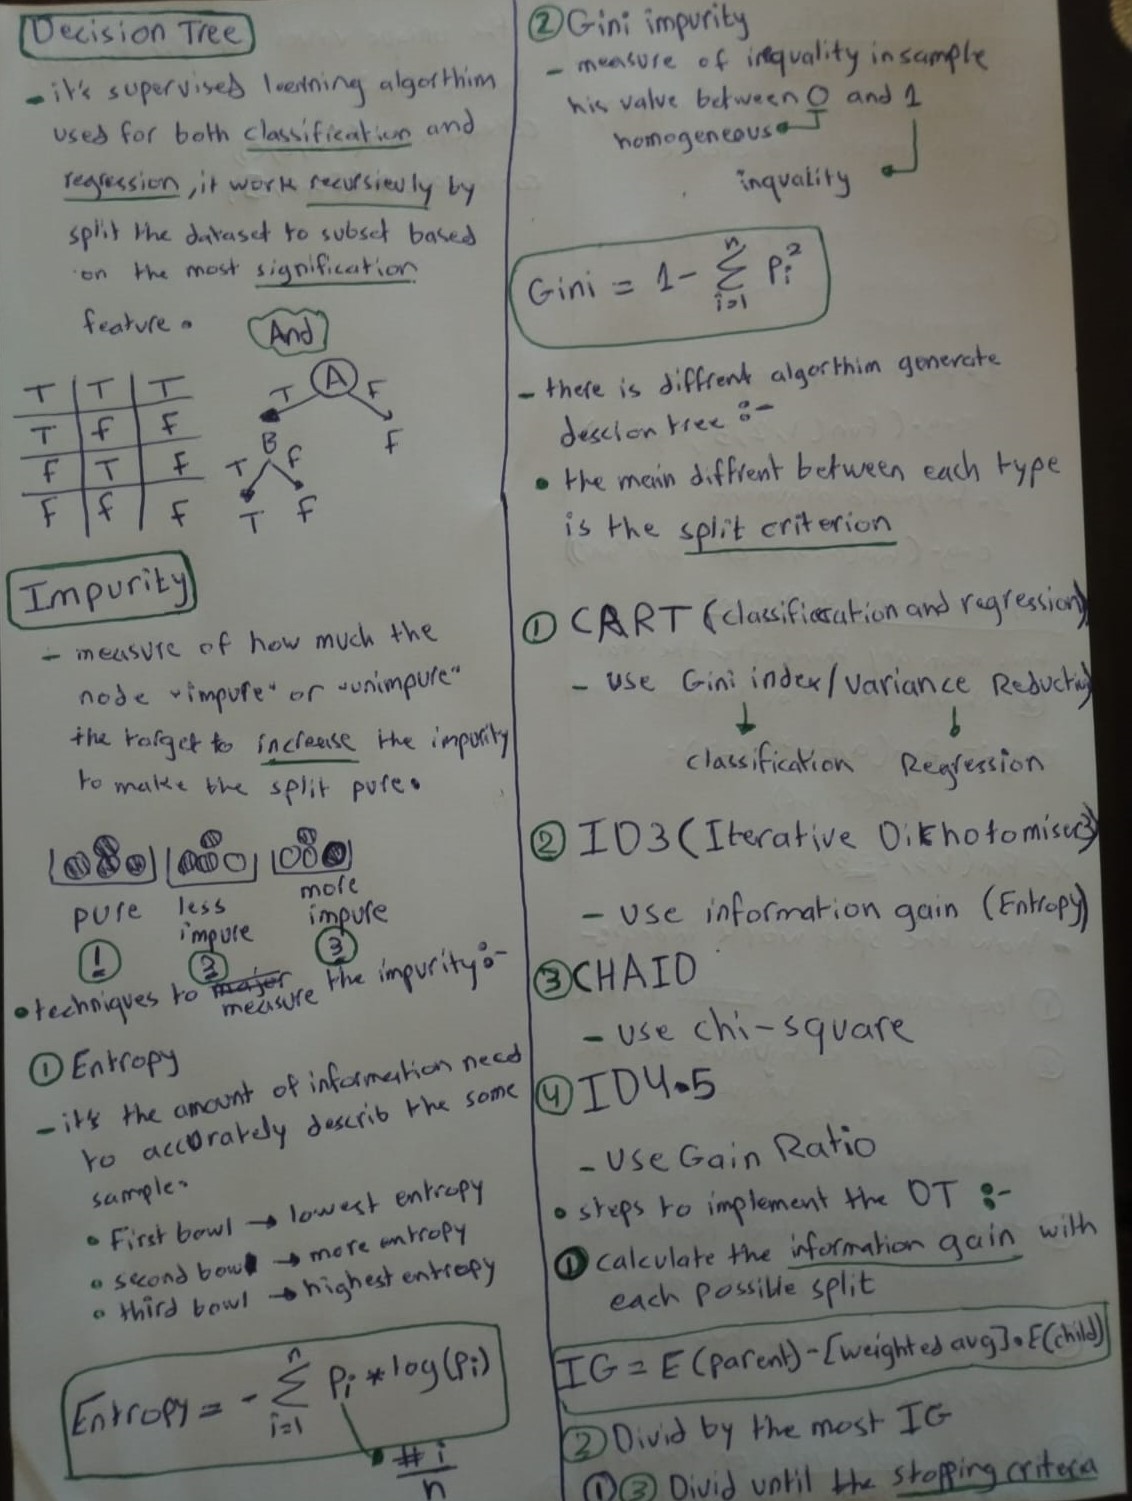 Decision Tree
- it's supervised leerning algorthim
used for both classification and
regression, it work recursievly by
split the dataset to subset based
on the most signification
feature.
And
T T T
T F F
F T F
F F F
A
T F
B F
T F
T F
Impurity
- measure of how much the
node "impure" or "unimpure"
the target to increese the impurity
to make the split pure.
pure less impure more impure
1 2 3
• techniques to measure the impurity :-
① Entropy
- it's the amount of information need
to accurately describ the some
sample.
• First bowl → lowest entropy
• second bowl → more entropy
• third bowl → highest entropy
Entropy = - Σ i=1 n Pi * log(Pi)
# i / n
② Gini impurity
- measure of inequality in sample
his value between 0 and 1
homogeneous
inquality
Gini = 1 - Σ i=1 n Pi²
- there is diffrent algorthim generate
descion tree :-
• the main diffrent between each type
is the split criterion
① CART (classification and regression)
- use Gini index / Variance Reduction
classification Regression
② ID3 (Iterative Dikhotomiser3)
- use information gain (Entropy)
③ CHAID
- use chi-square
④ ID4.5
- use Gain Ratio
• steps to implement the DT :-
① calculate the information gain with
each possible split
IG = E(parent) - [weighted avg] • E(child)
② Divid by the most IG
① ③ Divid until the stopping criteria